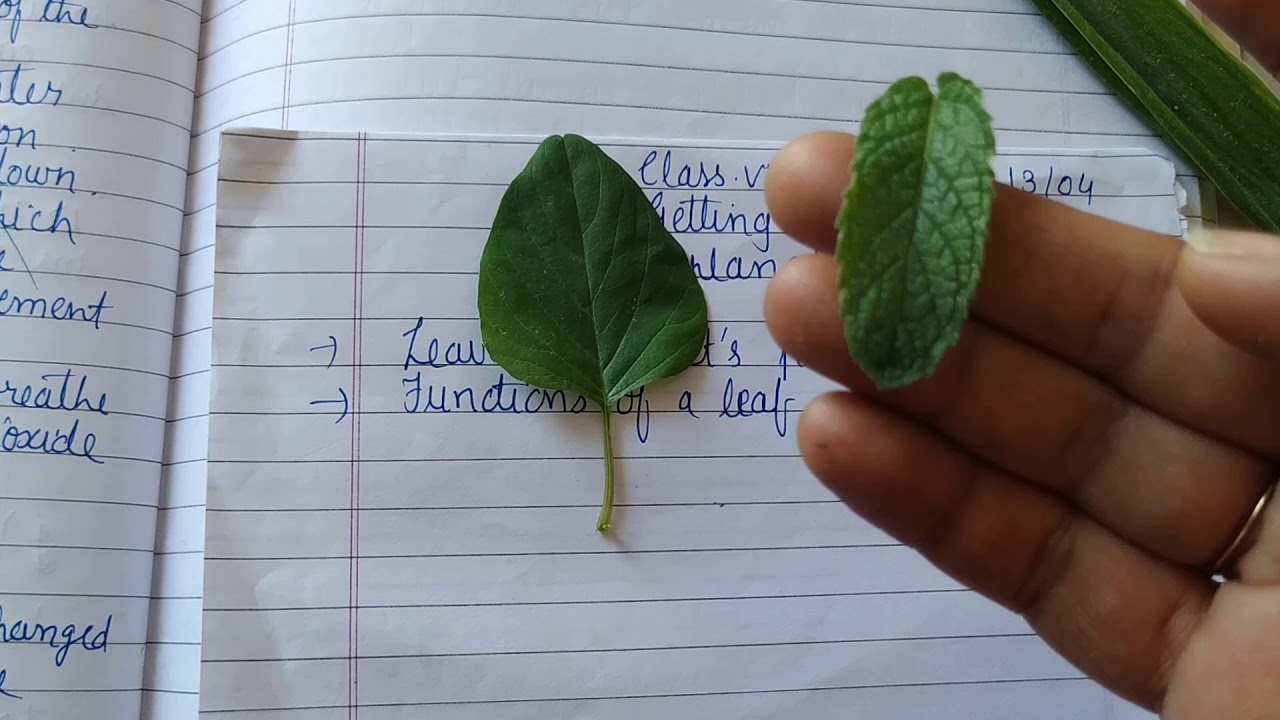 of the
on
down.
hich
ement
reathe
oxide
hanged
Class.V 13/04
Getting
plan
→ Leav t's
→ Functions of a leaf